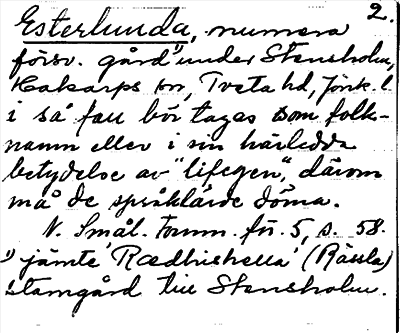 2.
Esterlunda, numera
försv. gård¹⁾ under Stensholm,
Hakarps sn, Tveta hd, Jönk. l.
i så fall bör tagas som folk-
namn eller i sin härledda
betydelse av "lifegen", därom
må de språklärde döma.
N. Smål. Fornm. för. 5, s. 58.
¹⁾ jämte 'Rædhishella' (Rässla)
stamgård till Stensholm.